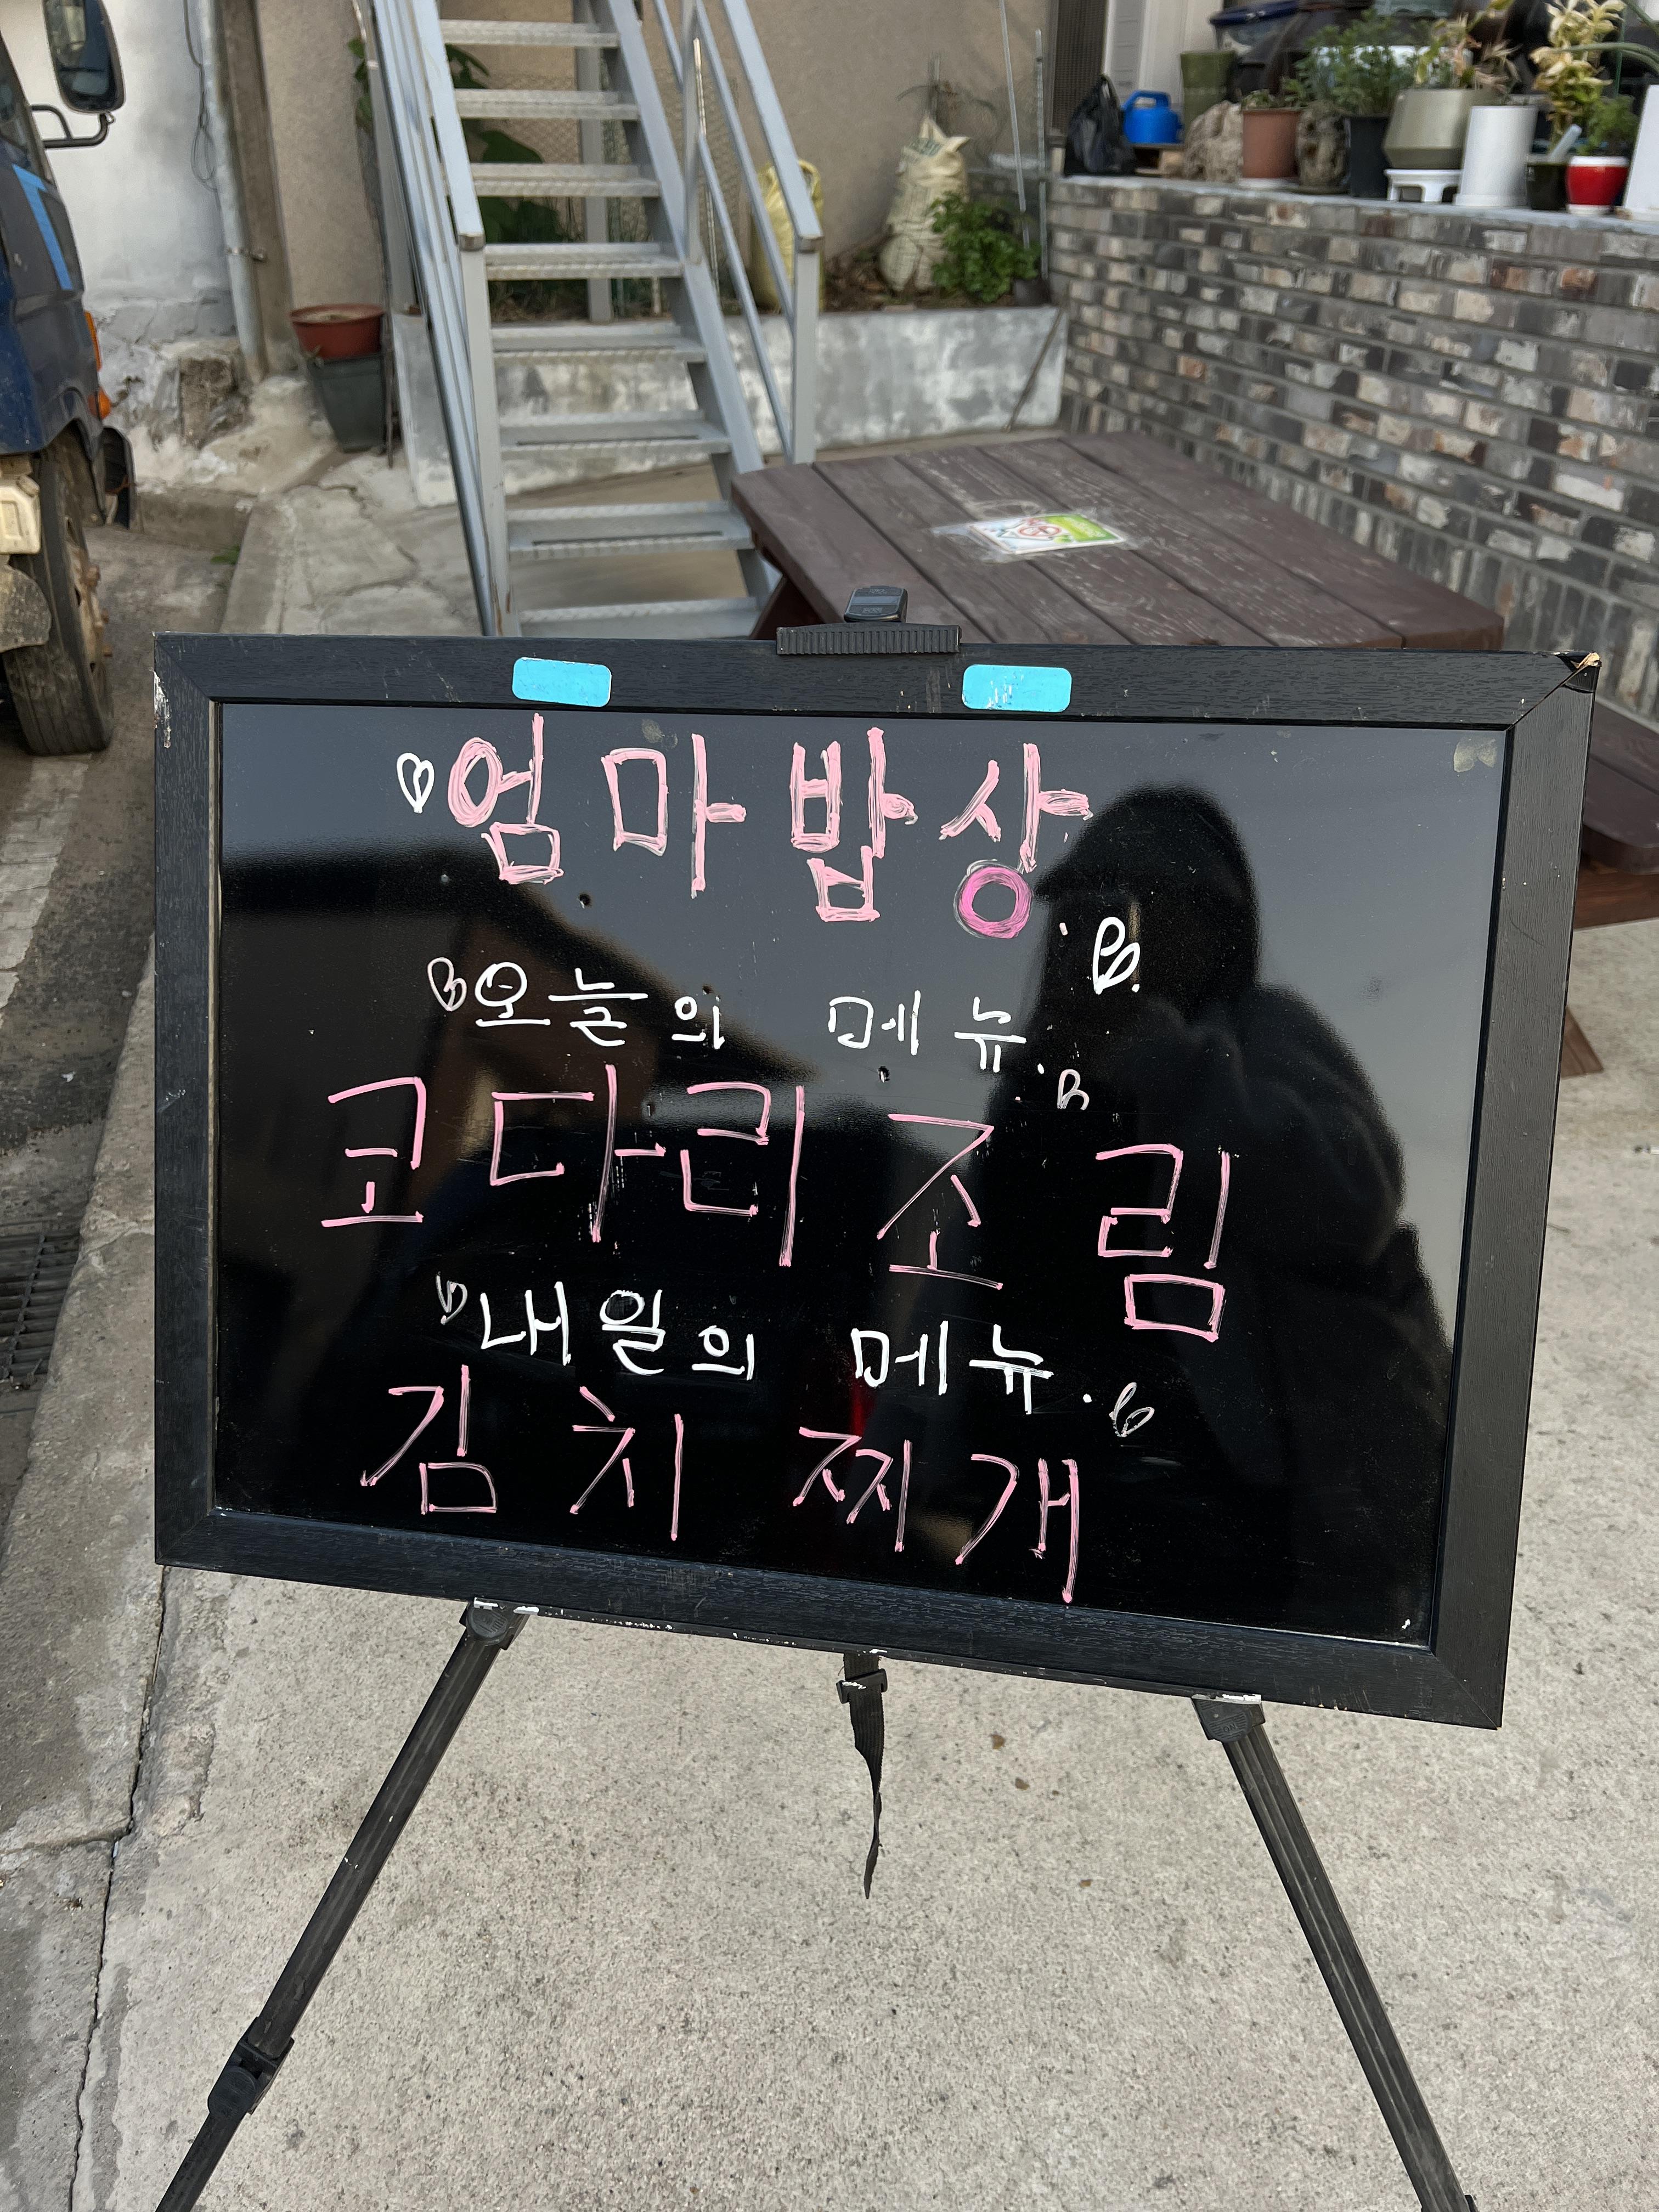 엄마밥상
오늘의 메뉴.
코다리조림
내일의 메뉴.
김치찌개